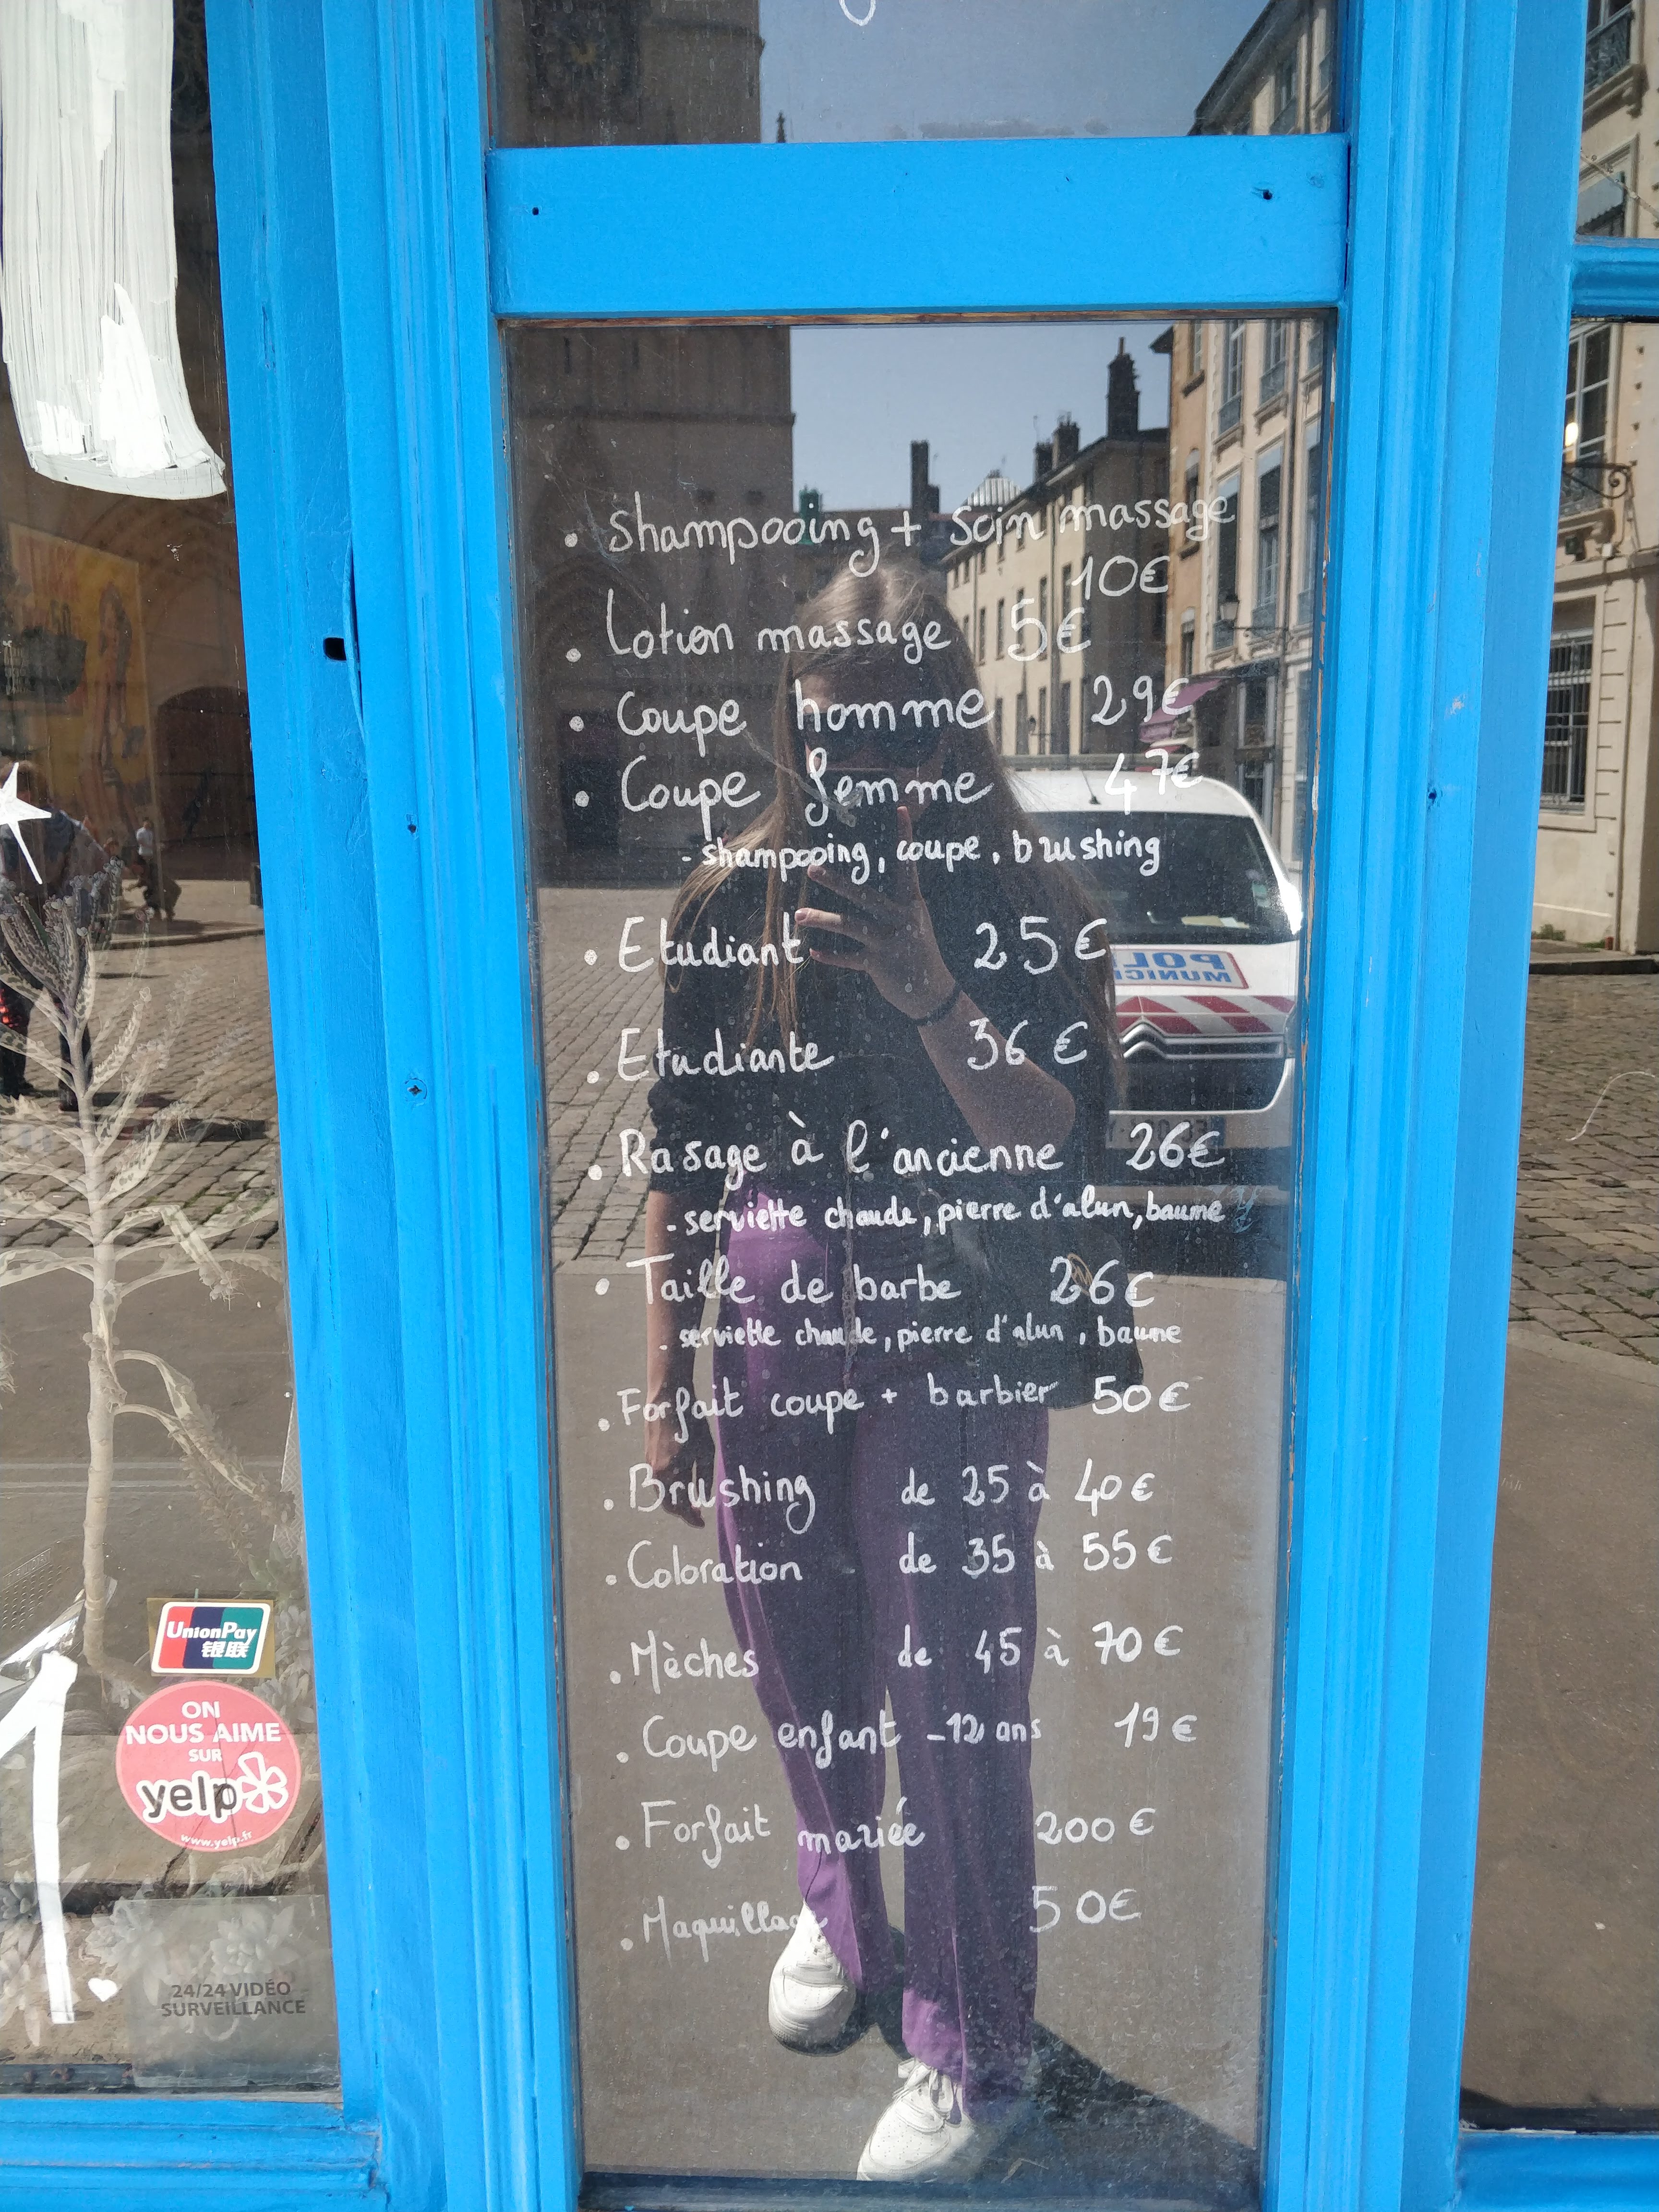 • Shampooing + Soin massage
10€
• Lotion massage 5€
• Coupe homme 29€
• Coupe femme 47€
- shampooing, coupe, brushing
• Etudiant 25€
• Etudiante 36€
• Rasage à l'ancienne 26€
- serviette chaude, pierre d'alun, baume
• Taille de barbe 26€
- serviette chaude, pierre d'alun, baume
• Forfait coupe + barbier 50€
• Brushing de 25 à 40€
• Coloration de 35 à 55€
• Mèches de 45 à 70€
• Coupe enfant -12 ans 19€
• Forfait mariée 200€
• Maquillage 50€
UnionPay
银联
ON
NOUS AIME
SUR
yelp
www.yelp.fr
1.
24/24 VIDÉO
SURVEILLANCE